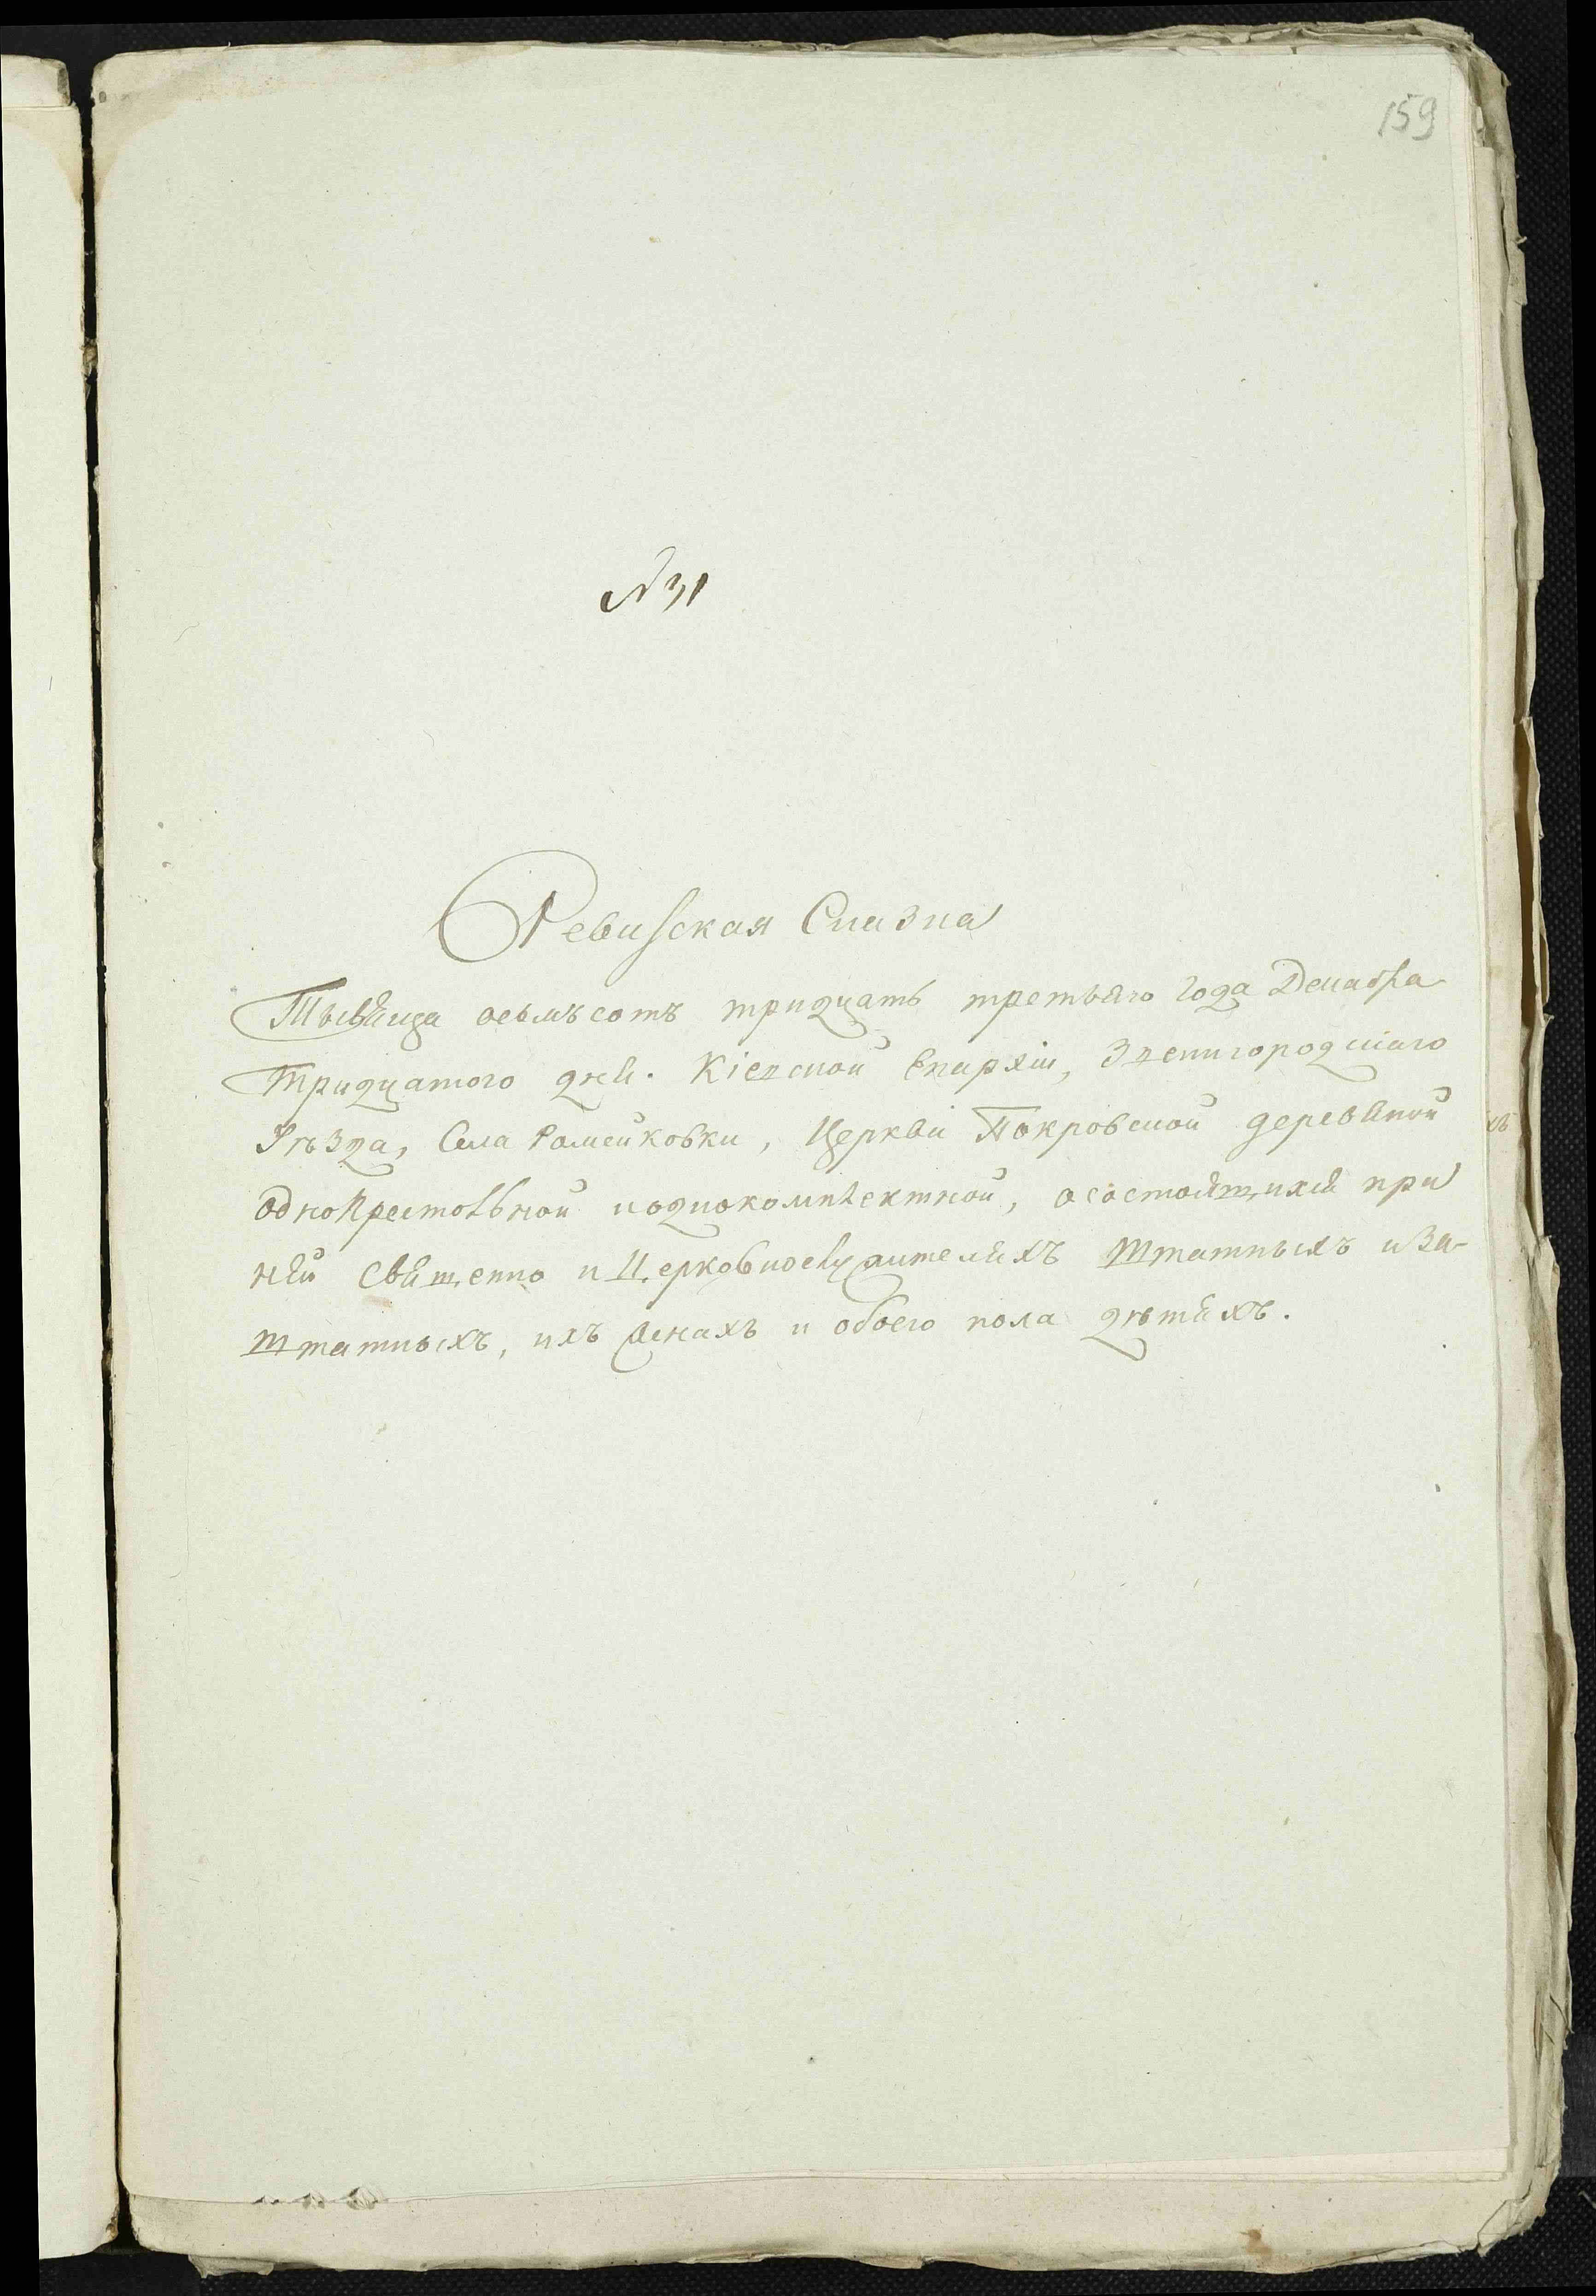 159
№ 31
Ревизская Сказка
Тысяща осьмъсотъ тридцать третьяго года Декабря
тридцатого дня. Кіевской Епархіи, Звенигородскаго
Уѣзда, Села Ромейковки, Церкви Покровской деревяной
однопрестольной иоднокомплектной, осостоящихъ при
ней священно и Церковнослужителяхъ штатныхъ иза-
штатныхъ, ихъ женахъ и обоего пола дѣтяхъ.